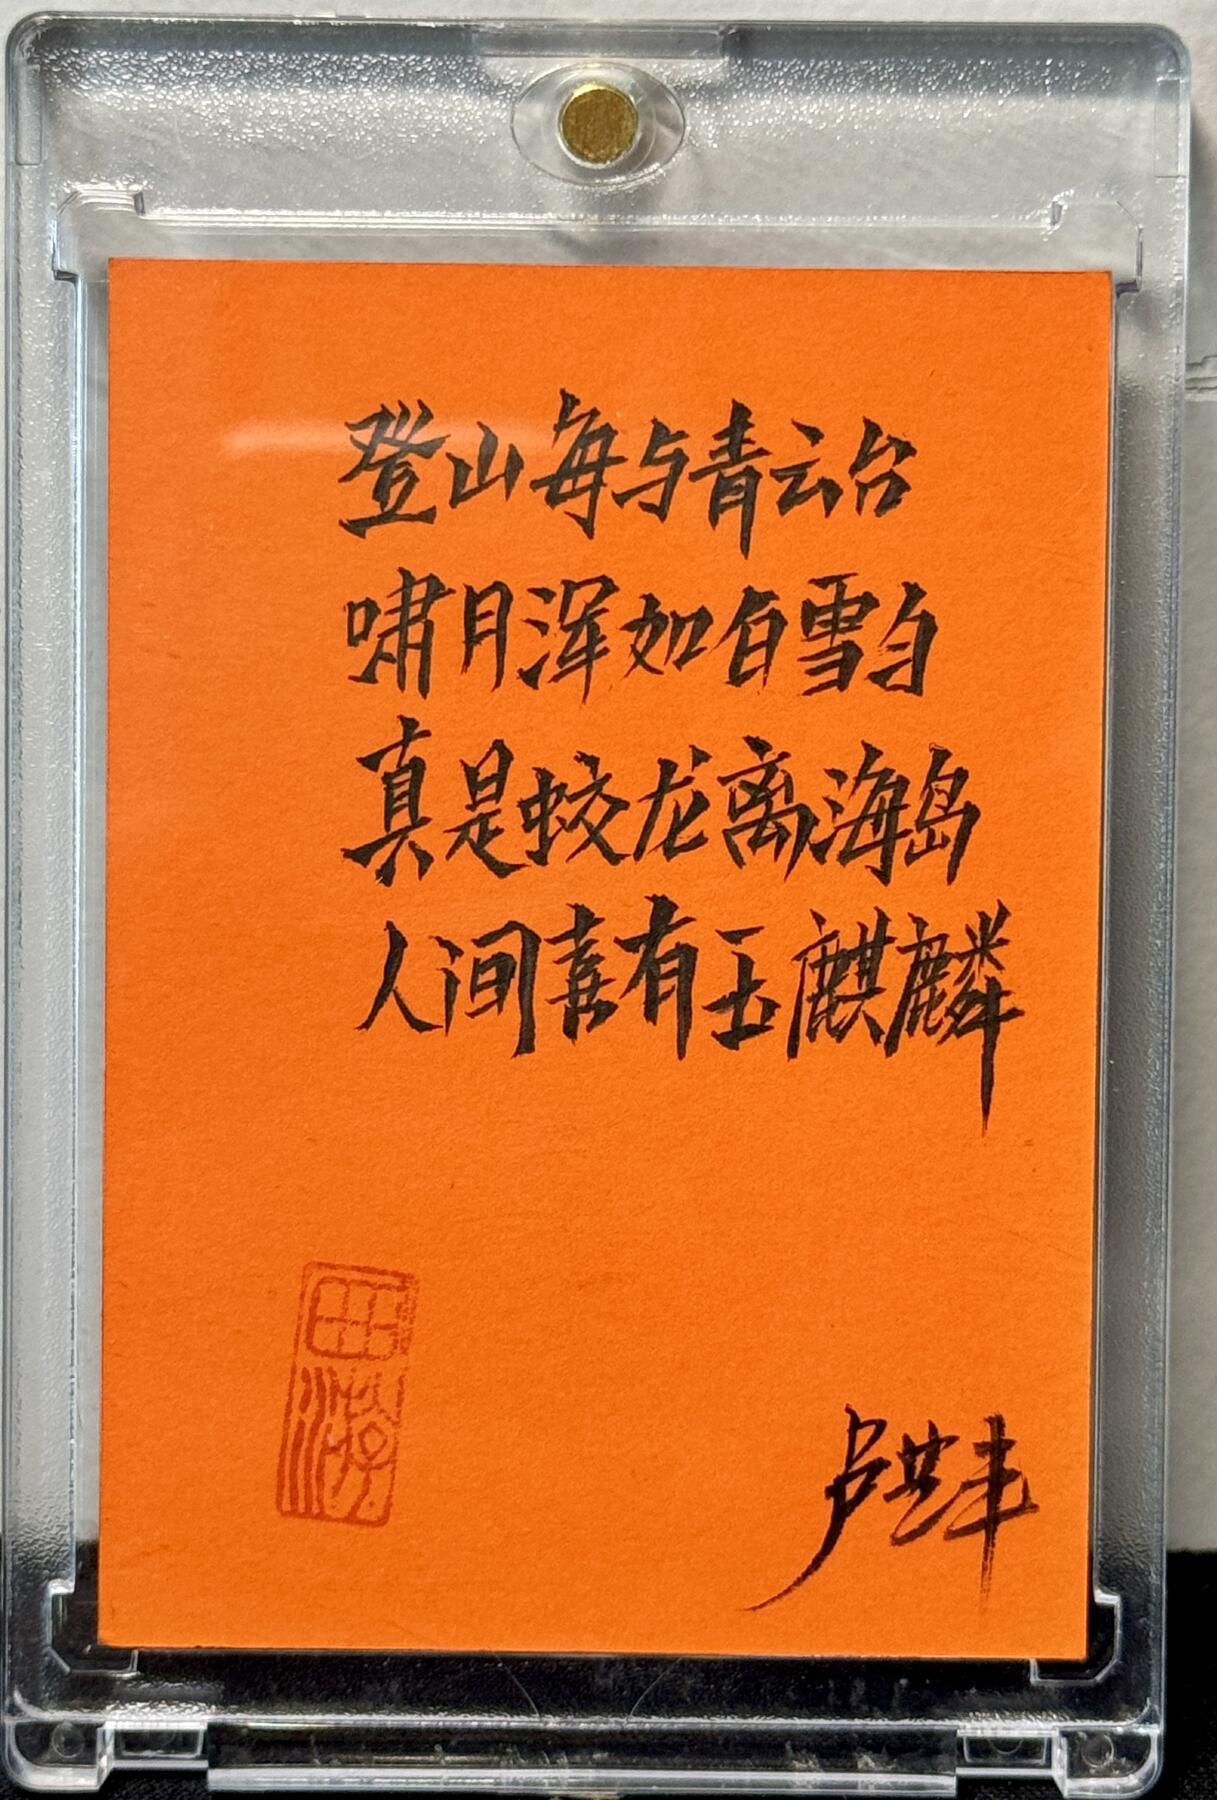 登山每与青云台
啸月浑如白雪白
真是蛟龙离海岛
人间喜有玉麒麟
卢洪丰